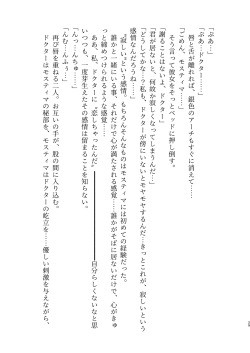 「ぷあ…」
「ぷあ…ドクター……」
唇と舌が離れれば、銀色のアーチもすぐに消えて……
「ごめん、モスティマ」
そう言って彼女をそっとベッドに押し倒す。
「謝ることはないよ、ドクター」
「君が居ないと、何故か寂しくなってしまうんだ…」
「どうしてかな…？私も、ドクターが傍にいないとモヤモヤするんだ…きっとこれが、寂しいという
感情なんだろうね……」
「寂しい」という感情。もちろんそんなものはモスティマには初めての経験だった。
誰かと一緒にいる事、それだけで心が満たされる感覚…誰かがそばに居ないだけで、心がきゅ
っと締めつけられるような感覚……
ああ、私、ドクターに「恋しちゃったんだ」
――自分らしくないなと思
いつつも、一度芽生えたその感情は留まることを知らない。
「んっ…んちゅ…」
「んむ…んふぅ…」
再び唇を重ねる二人。お互いの手が、股の間に入り込む。
ドクターはモスティマの秘部を、モスティマはドクターの屹立を……優しい刺激を与えながら、